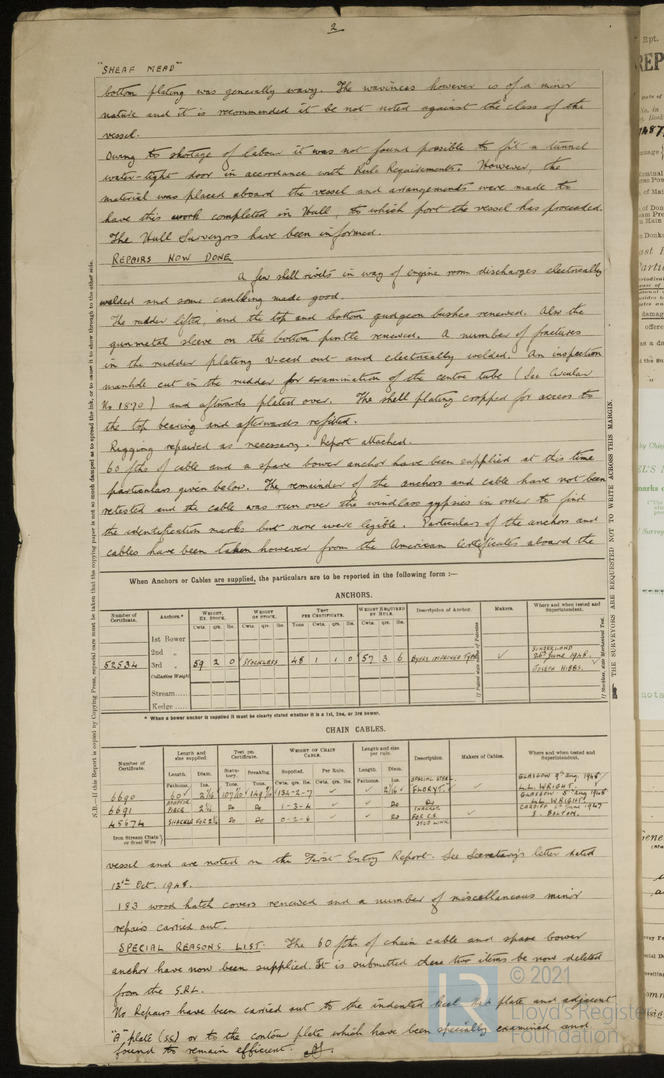 2
"SHEAF MEAD"
bottom plating was generally wavy. The waviness however is of a minor
nature and it is recommended it be not noted against the class of the
vessel.
Owing to shortage of labour it was not found possible to fit a tunnel
water-tight door in accordance with Rule Requirements. However, the
material was placed aboard the vessel and arrangements were made to
have this work completed in Hull, to which port the vessel has proceeded.
The Hull Surveyors have been informed.
REPAIRS NOW DONE
A few shell rivets in way of engine room discharges electrically
welded and some caulking made good.
The rudder lifted, and the top and bottom gudgeon bushes renewed. Also the
gunmetal sleeve on the bottom pintle renewed. A number of fractures
in the rudder plating v-eed out and electrically welded. An inspection
manhole cut in the rudder for examination of the centre tube (See Circular
No 1890) and afterwards plated over. The shell plating cropped for access to
the top bearing and afterwards refitted.
Rigging repaired as necessary. Report attached.
60 fths of cable and a spare bower anchor have been supplied at this time
particulars given below. The remainder of the anchors and cable have not been
retested and the cable was run over the windlass gypsies in order to find
the identification marks but none were legible. Particulars of the anchors and
cables have been taken however from the American Certificates aboard the
When Anchors or Cables are supplied, the particulars are to be reported in the following form :—
ANCHORS.
Number of Certificate. Anchors.* WEIGHT, EX. STOCK. WEIGHT OF STOCK. TEST PER CERTIFICATE. WEIGHT REQUIRED BY RULE. Description of Anchor. Makers. Where and when tested and Superintendent.
Cwts. qrs. lbs. Cwts. qrs. lbs. Tons cwts. qrs. lbs. Cwts. qrs. lbs.
1st Bower
2nd "
52534 3rd " 59 2 0 STOCKLESS 48 1 1 0 57 3 6 BYERS IMPROVED TYPE ✓ SUNDERLAND 26th June 1948. JOSEPH HIBBS.
(Collective Weight)
Stream
Kedge
* When a bower anchor is supplied it must be clearly stated whether it is a 1st, 2nd, or 3rd bower.
CHAIN CABLES.
Number of Certificate. Length and size supplied. Test per Certificate. WEIGHT OF CHAIN CABLE. Length and size per rule. Description. Makers of Cables. Where and when tested and Superintendent.
Length. Diam. Statutory. Breaking. Supplied. Per Rule. Length. Diam.
Fathoms. Ins. Tons. Tons. Cwts. qrs. lbs. Cwts. qrs. lbs. Fathoms. Ins.
6690 60 2 1/16 134-2-7 ✓ ✓ 2 1/16 SPECIAL STEEL ✓ GLASGOW 9th Aug. 1948 L.L. WRIGHT.
6691 1-3-4 ✓ ✓ Do Do GLASGOW 5th Aug 1948 L.L. WRIGHT.
45674 SHACKLE FOR Do Do 0-2-6 ✓ ✓ Do SHACKLE FOR STUD LINK ✓ CARDIFF June 1947 S. BOLTON.
Iron Stream Chain or Steel Wire
vessel and are noted on the First Entry Report. See Secretary's letter dated
13th Oct. 1948.
183 wood hatch covers renewed and a number of miscellaneous minor
repairs carried out.
SPECIAL REASONS LIST. The 60 fths of chain cable and spare bower
anchor have now been supplied. It is submitted these two items be now deleted
from the S.R.L.
No Repairs have been carried out to the indented keel plate and adjacent
"A" plate (ss) or to the contour plate which have been specially examined and
found to remain efficient.
N.B.—If this Report is copied by Copying Press, especial care must be taken that the copying paper is not so much damped as to spread the ink, or to cause it to show through to the other side.
THE SURVEYORS ARE REQUESTED NOT TO WRITE ACROSS THIS MARGIN.
LR
© 2021
Lloyd's Register
Foundation